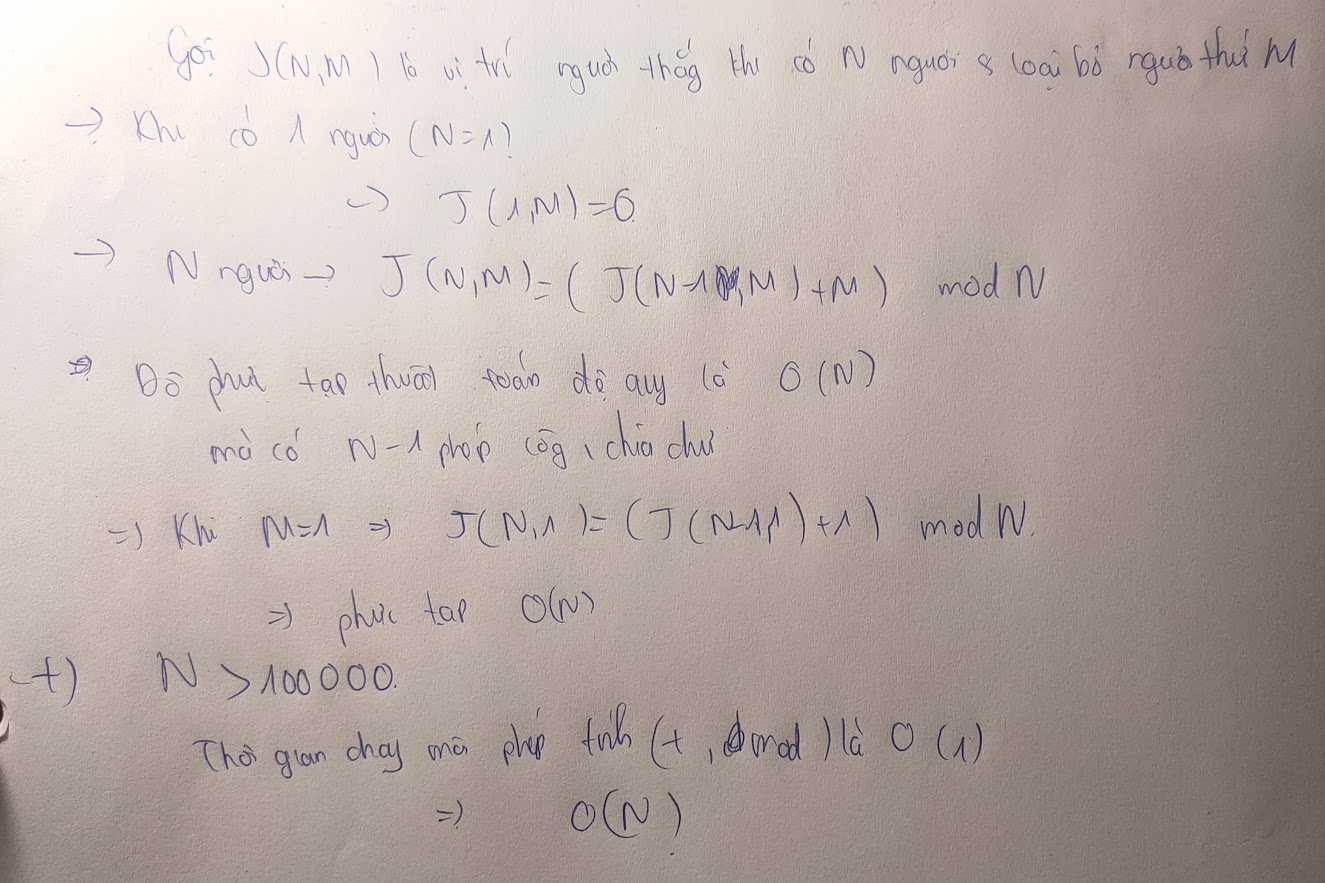 Gọi J(N,M) là vị trí người thắg khi có N người & loại bỏ người thứ M
→ Khi có 1 người (N=1)
→ J(1,M)=0.
→ N người → J(N,M)=( J(N-1,M)+M) mod N
→ Độ phức tạp thuật toán đệ quy là O(N)
mà có N-1 phép cộg, chia dư
=> Khi M=1 => J(N,1)=(J(N-1,1)+1) mod N.
=> phức tạp O(N)
+) N >100000.
Thời gian chạy mỗi phép tính (+, mod) là O(1)
=> O(N)